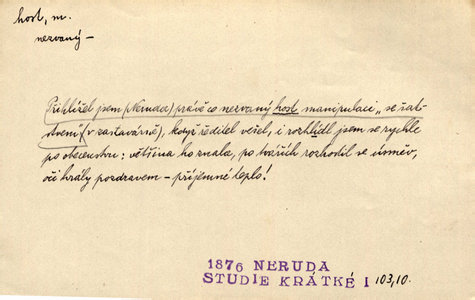 host, m.
nezvaný –
Přihlížel jsem (Neruda) právě co nezvaný host manipulaci „se šat-
stvem“ (v zastavárně), když ředitel vešel, i rozhlídl jsem se rychle
po obecenstvu: většina ho znala, po tvářích rozhodil se úsměv,
oči hrály pozdravem – příjemné teplo!
1876 NERUDA
STUDIE KRÁTKÉ I 103,10.